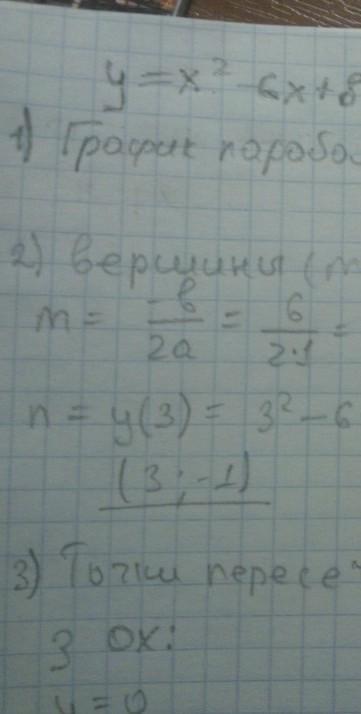 y = x² - 6x + 8
1) График парабо
2) вершины (m
m = -b/2a = 6/2·1 =
n = y(3) = 3² - 6
(3; -1)
3) Точки пересе
З ОХ:
y = 0